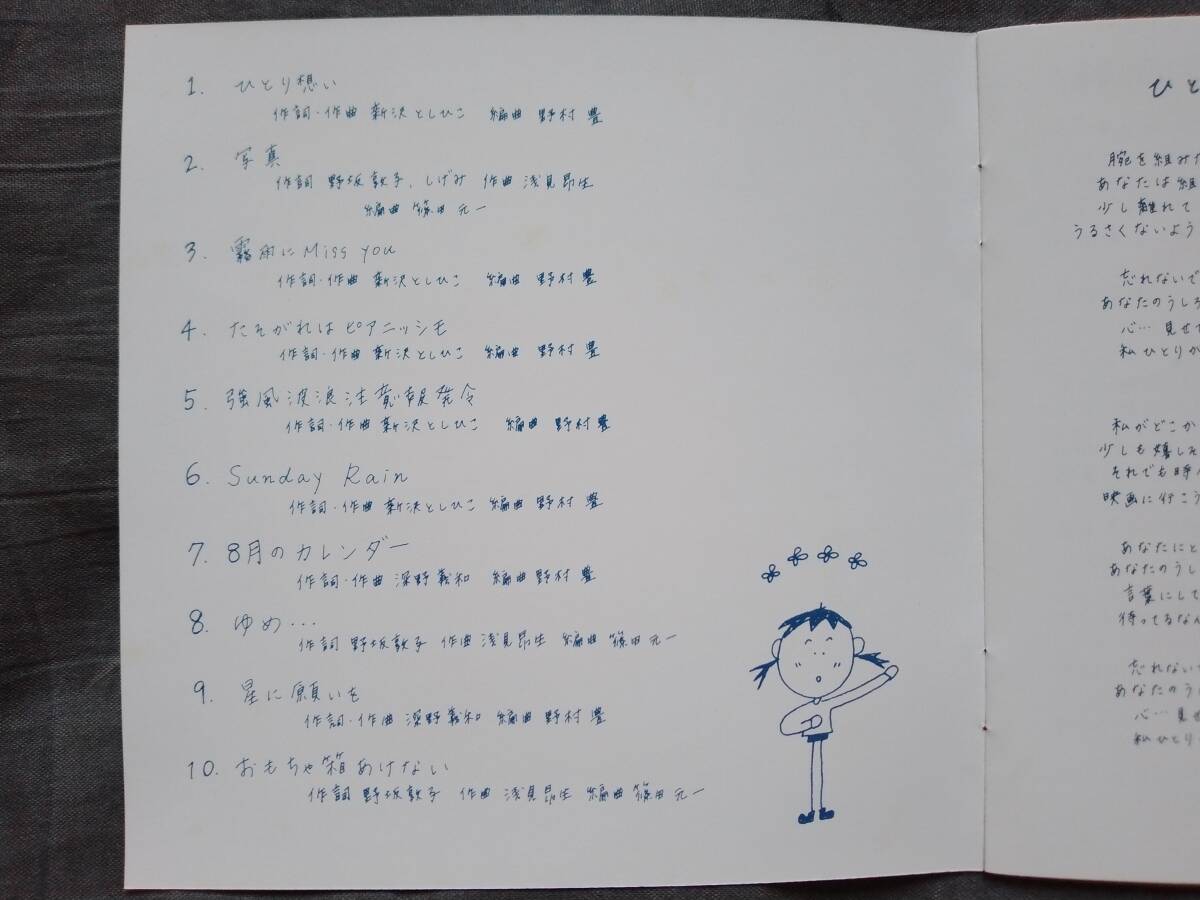 1. ひとり想い
作詞・作曲 新沢としひこ 編曲 野村 豊
2. 写真
作詞 野坂敦子、しげみ 作曲 浅見昂生
編曲 篠田元一
3. 霧雨にMiss you
作詞・作曲 新沢としひこ 編曲 野村 豊
4. たそがれはピアニッシモ
作詞・作曲 新沢としひこ 編曲 野村 豊
5. 強風波浪注意報発令
作詞・作曲 新沢としひこ 編曲 野村 豊
6. Sunday Rain
作詞・作曲 新沢としひこ 編曲 野村 豊
7. 8月のカレンダー
作詞・作曲 深野義和 編曲 野村 豊
8. ゆめ…
作詞 野坂敦子 作曲 浅見昂生 編曲 篠田元一
9. 星に願いを
作詞・作曲 深野義和 編曲 野村 豊
10. おもちゃ箱あけない
作詞 野坂敦子 作曲 浅見昂生 編曲 篠田元一
ひと
腕を組みた
あなたは組
少し離れて
うるさくないよう
忘れないで
あなたのうしろ
心… 見せて
私ひとりが
私がどこか
少しも嬉しそ
それでも時々
映画に行こう
あなたにと
あなたのうし
言葉にして
待ってるなん
忘れないで
あなたのうし
心… 見せ
私ひとり